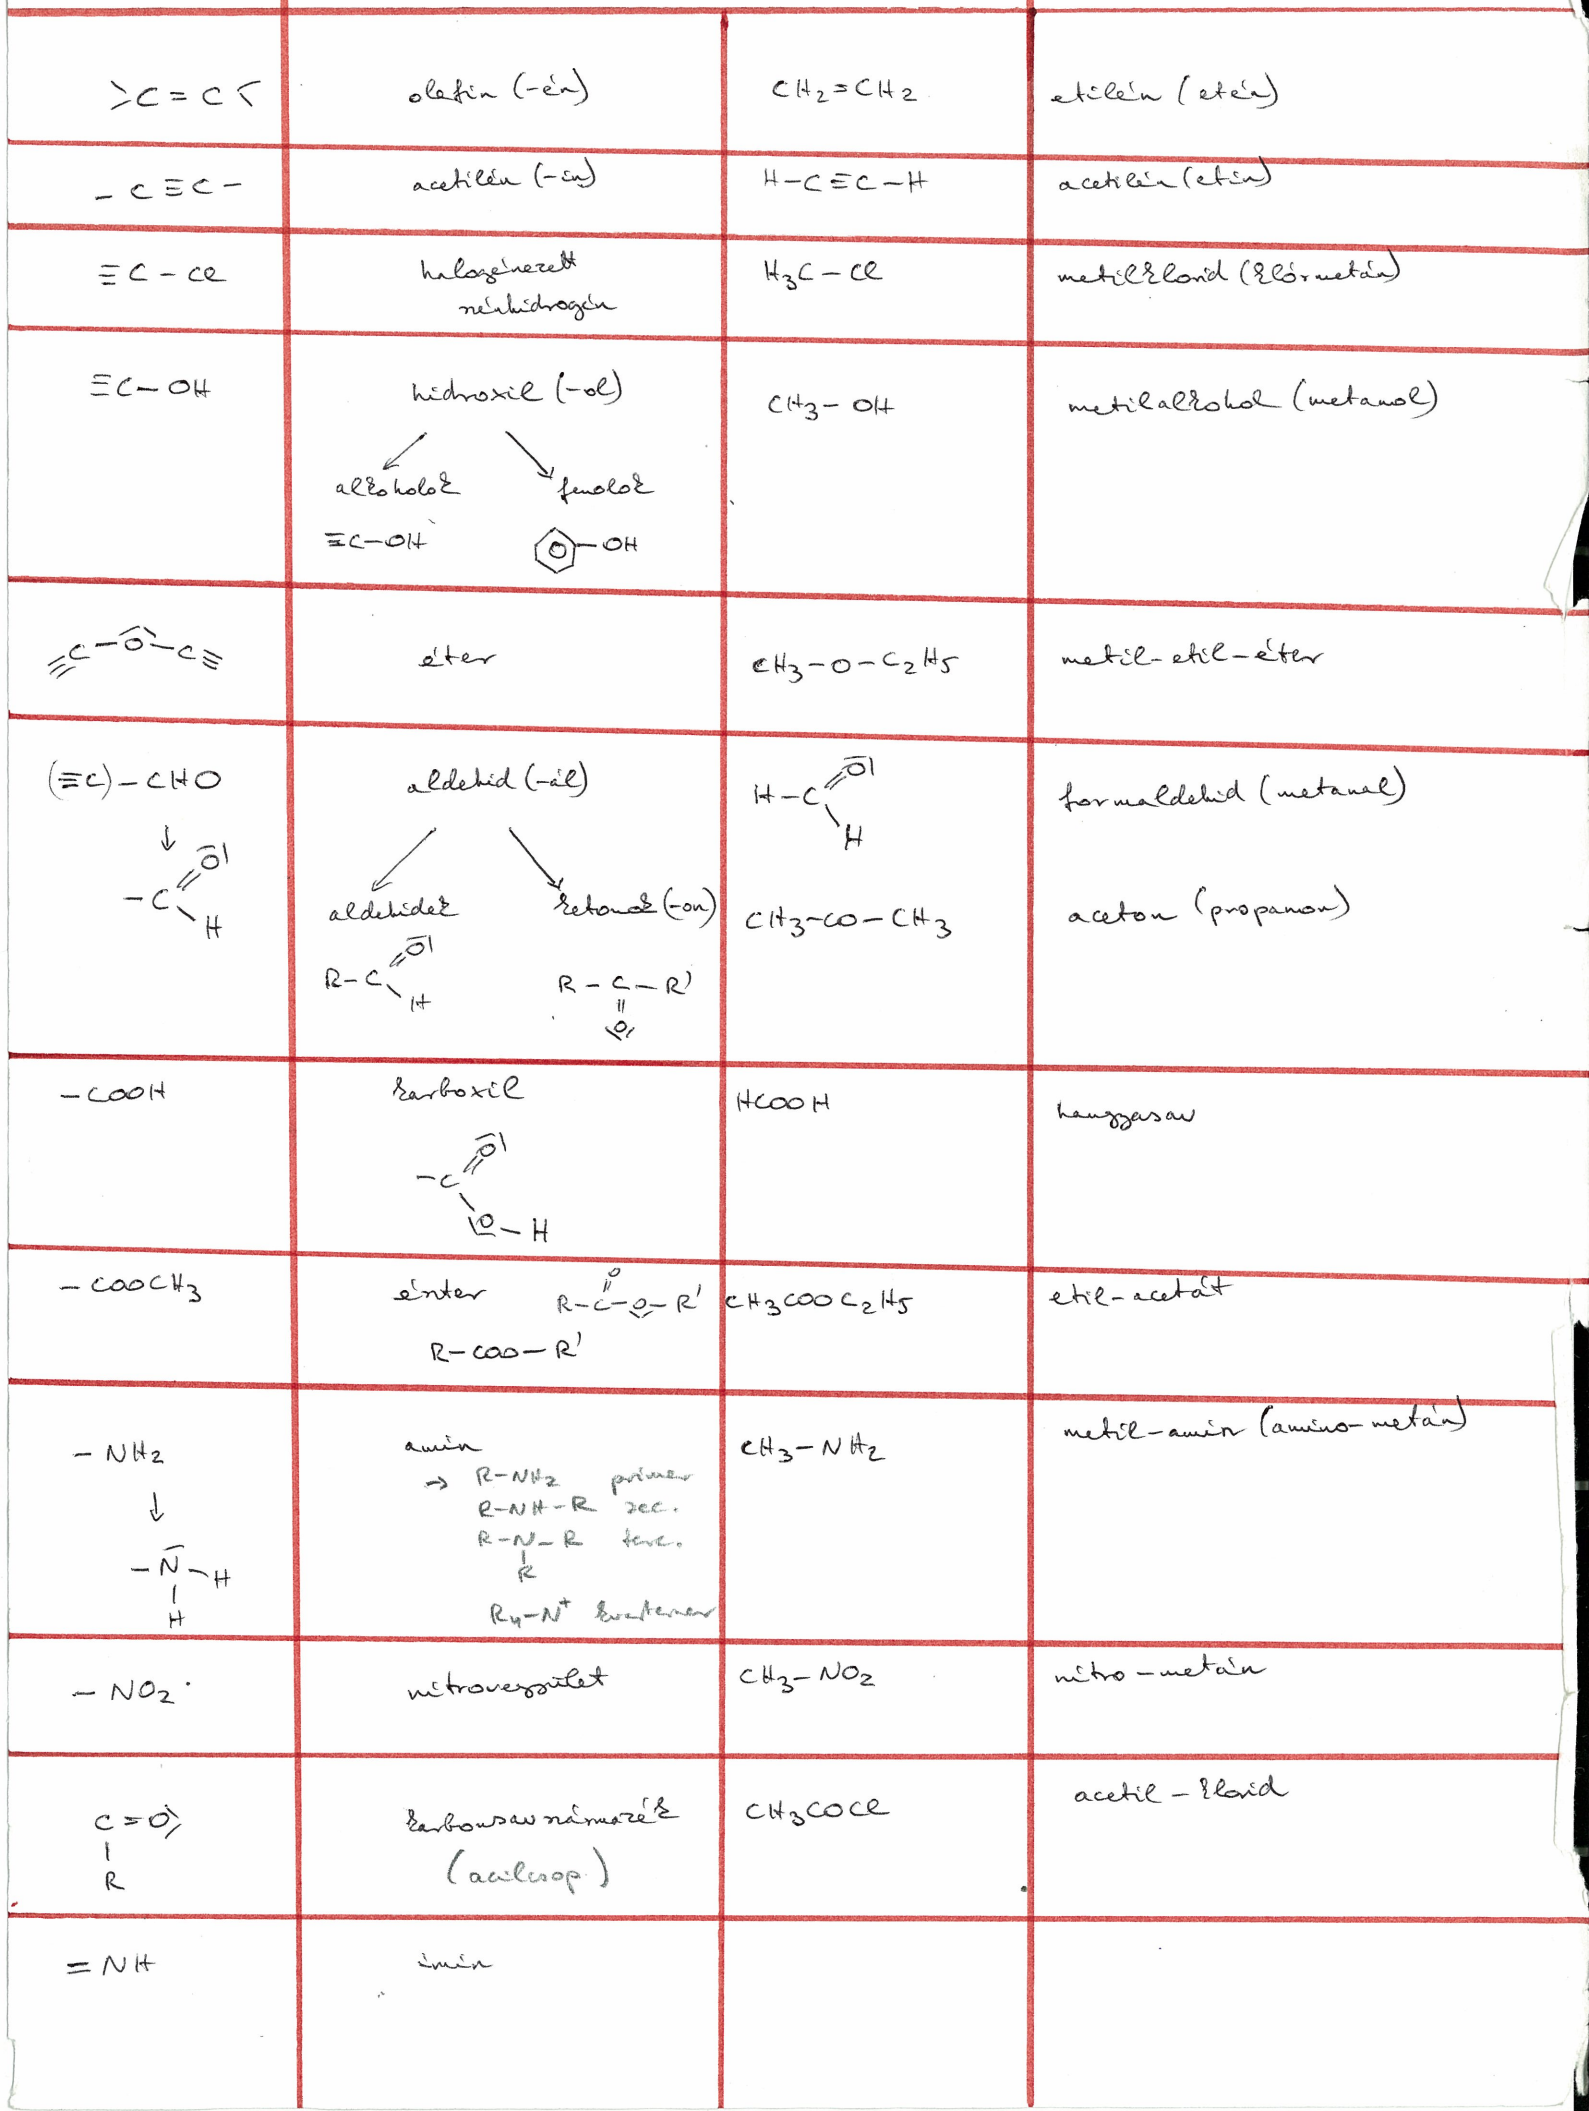 >C=C<
olefin (-én)
CH2=CH2
etilén (etén)
-C≡C-
acetilén (-in)
H-C≡C-H
acetilén (etin)
≡C-Cl
halogénezett
szénhidrogén
H3C-Cl
metilklorid (klórmetán)
≡C-OH
hidroxil (-ol)
CH3-OH
metilalkohol (metanol)
↙ ↘
alkoholok fenolok
≡C-OH -OH
≡C-O-C≡
éter
CH3-O-C2H5
metil-etil-éter
(≡C)-CHO
↓
-C=O
H
aldehid (-ál)
↙ ↘
aldehidek ketonok (-on)
R-C=O
H
R-C-R'
||
O
H-C=O
H
formaldehid (metanal)
CH3-CO-CH3
aceton (propanon)
-COOH
karboxil
-C=O
O-H
HCOOH
hangyasav
-COOCH3
észter
O
||
R-C-O-R'
R-COO-R'
CH3COOC2H5
etil-acetát
-NH2
↓
-N-H
|
H
amin
→ R-NH2 primer
R-NH-R szec.
R-N-R terc.
|
R
R4-N+ kvaterner
CH3-NH2
metil-amin (amino-metán)
-NO2
nitrovegyület
CH3-NO2
nitro-metán
C=O
|
R
karbonsavszármazék
(acilcsop.)
CH3COCl
acetil-klorid
=NH
imin